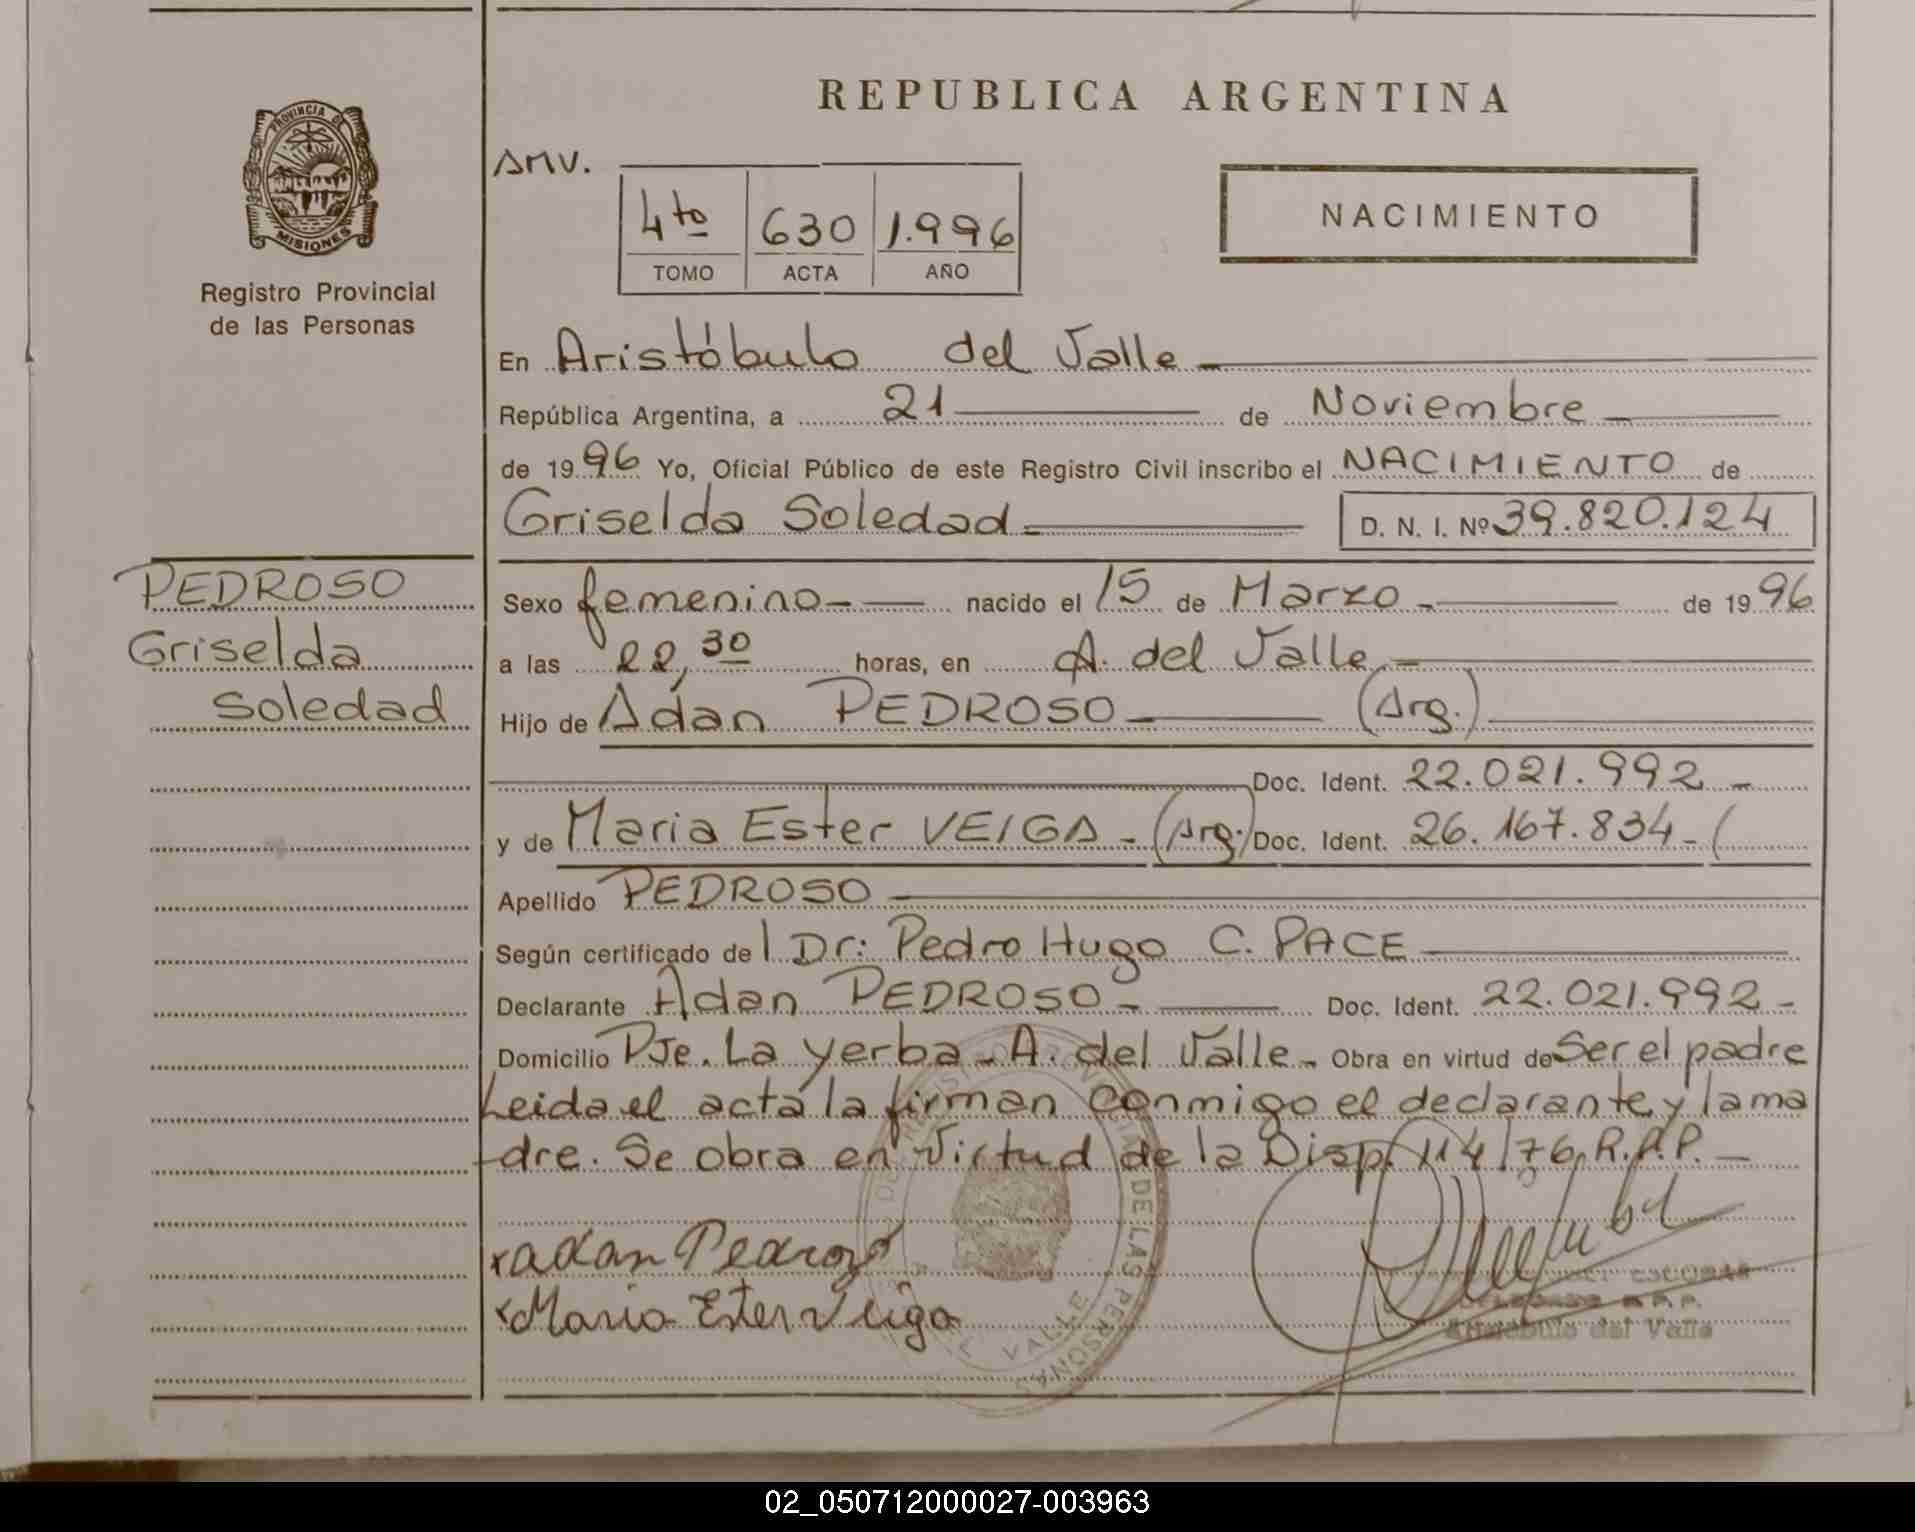 REPUBLICA ARGENTINA
PROVINCIA DE
MISIONES
Registro Provincial
de las Personas
AMV.
4to 630 1.996
TOMO ACTA AÑO
NACIMIENTO
En Aristóbulo del Valle
República Argentina, a 21 de Noviembre
de 1996 Yo, Oficial Público de este Registro Civil inscribo el NACIMIENTO de
Griselda Soledad D. N. I. Nº 39.820.124
PEDROSO
Griselda
Soledad
Sexo femenino nacido el 15 de Marzo de 1996
a las 22,30 horas, en A. del Valle
Hijo de Adan PEDROSO (Arg.)
Doc. Ident. 22.021.992
y de Maria Ester VEIGA - (Arg.) Doc. Ident. 26.167.834 - (
Apellido PEDROSO
Según certificado de l Dr: Pedro Hugo C. PACE
Declarante Adan PEDROSO Doc. Ident. 22.021.992 -
Domicilio Pje. La yerba - A. del Valle - Obra en virtud de Ser el padre
Leida el acta la firman conmigo el declarante y la ma
dre. Se obra en virtud de la Disp. 114/76 R.P.P. -
x Adan Pedrozo
x Maria Ester Veiga
DE LAS PERSONAS
VALLE
ESCOBAR
Aristóbulo del Valle
02_050712000027-003963